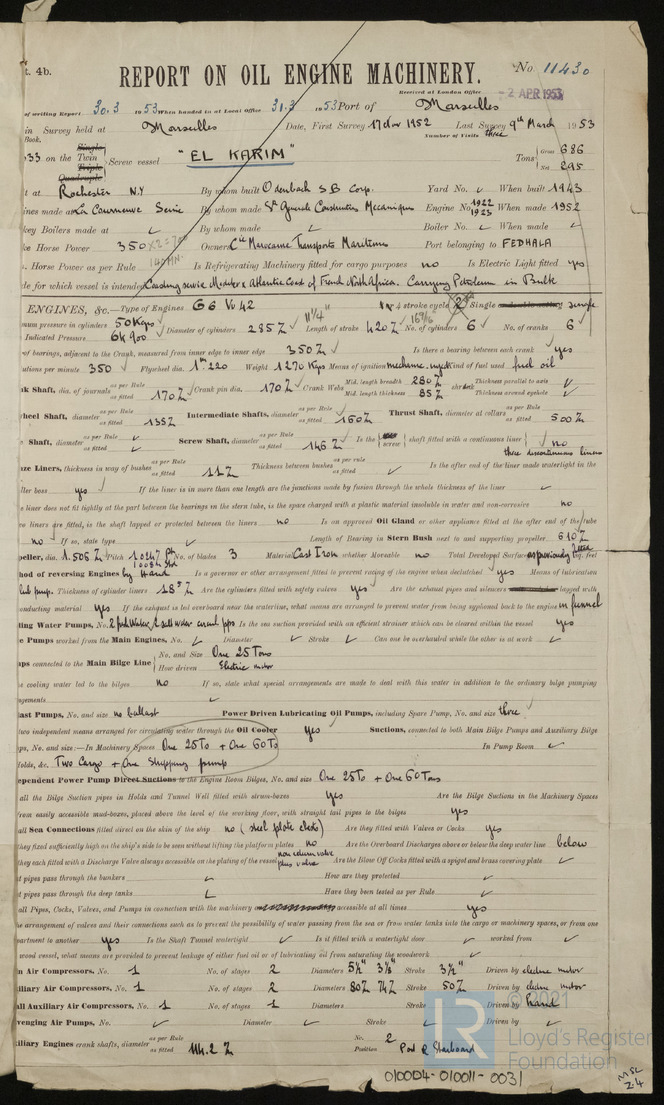 t. 4b.
REPORT ON OIL ENGINE MACHINERY.
No. 11430
Received at London Office
2 APR 1953
of writing Report 30.3 1953 When handed in at Local Office 31.3 1953 Port of Marseilles
in Survey held at Marseilles Date, First Survey 17 Nov 1952 Last Survey 9th March 1953
Book. Number of Visits three
Single
33 on the Twin Screw vessel "EL KARIM" Tons Gross 686
Triple
Quadruple Net 295
t at Rochester N.Y By whom built Odenbach S B Corp. Yard No. ✓ When built 1943
ines made at La Courneuve Seine By whom made Sté Generale Constructions Mecaniques Engine No. 1922 1923 When made 1952
key Boilers made at ✓ By whom made ✓ Boiler No. ✓ When made ✓
ke Horse Power 350 x2=700 Owners Cie Marocaine Transports Maritimes Port belonging to FEDHALA
. Horse Power as per Rule 140 MN. Is Refrigerating Machinery fitted for cargo purposes no Is Electric Light fitted yes
de for which vessel is intended Coasting service Modster & Atlantic Coast of French North Africa. Carrying Petroleum in Bulk
ENGINES, &c. Type of Engines G6 Vv 42 or 4 stroke cycle 2 Single single
mum pressure in cylinders 50 Kgs Diameter of cylinders 285 Z 11 1/4" Length of stroke 420 Z 16 9/16 No. of cylinders 6 No. of cranks 6
Indicated Pressure 6k 900
of bearings, adjacent to the Crank, measured from inner edge to inner edge 350 Z Is there a bearing between each crank yes
utions per minute 350 Flywheel dia. 1m 220 Weight 1270 Kgs Means of ignition mechanic. inject Kind of fuel used fuel oil
nk Shaft, dia. of journals as per Rule as fitted 170 Z Crank pin dia. 170 Z Crank Webs Mid. length breadth 280 Z Mid. length thickness 85 Z shrunk Thickness parallel to axis ✓ Thickness around eyehole ✓
wheel Shaft, diameter as per Rule as fitted 135 Z Intermediate Shafts, diameter as per Rule as fitted 160 Z Thrust Shaft, diameter at collars as per Rule as fitted 500 Z
e Shaft, diameter as per Rule as fitted ✓ Screw Shaft, diameter as per Rule as fitted 146 Z Is the screw shaft fitted with a continuous liner no
three discontinuous liners
ze Liners, thickness in way of bushes as per Rule as fitted 11 Z Thickness between bushes as per rule as fitted ✓ Is the after end of the liner made watertight in the
ller boss yes If the liner is in more than one length are the junctions made by fusion through the whole thickness of the liner ✓
e liner does not fit tightly at the part between the bearings in the stern tube, is the space charged with a plastic material insoluble in water and non-corrosive no
wo liners are fitted, is the shaft lapped or protected between the liners no Is an approved Oil Gland or other appliance fitted at the after end of the tube
no If so, state type ✓ Length of Bearing in Stern Bush next to and supporting propeller 610 Z
peller, dia. 1.506 Z Pitch No. of blades 3 Material Cast Iron whether Moveable no Total Developed Surface as previously fitted sq. feet
hod of reversing Engines by Hand Is a governor or other arrangement fitted to prevent racing of the engine when declutched yes Means of lubrication
Thickness of cylinder liners 18.5 Z Are the cylinders fitted with safety valves yes Are the exhaust pipes and silencers lagged with
onducting material yes If the exhaust is led overboard near the waterline, what means are arranged to prevent water from being syphoned back to the engine in funnel
ling Water Pumps, No. 2 fresh water, 2 salt water circul. pps Is the sea suction provided with an efficient strainer which can be cleared within the vessel yes
e Pumps worked from the Main Engines, No. ✓ Diameter ✓ Stroke ✓ Can one be overhauled while the other is at work ✓
ps connected to the Main Bilge Line No. and Size One 25 Tons
How driven Electric motor
e cooling water led to the bilges no If so, state what special arrangements are made to deal with this water in addition to the ordinary bilge pumping
ngements ✓
last Pumps, No. and size no ballast Power Driven Lubricating Oil Pumps, including Spare Pump, No. and size three
two independent means arranged for circulating water through the Oil Cooler Yes Suctions, connected to both Main Bilge Pumps and Auxiliary Bilge
ps, No. and size:—In Machinery Spaces One 25 To + One 60 To In Pump Room ✓
folds, &c. Two Cargo + One Stripping pump
ependent Power Pump Direct Suctions to the Engine Room Bilges, No. and size One 25 To + One 60 Tons
all the Bilge Suction pipes in Holds and Tunnel Well fitted with strum-boxes yes Are the Bilge Suctions in the Machinery Spaces
from easily accessible mud-boxes, placed above the level of the working floor, with straight tail pipes to the bilges yes
all Sea Connections fitted direct on the skin of the ship no (steel plate chests) Are they fitted with Valves or Cocks yes
they fixed sufficiently high on the ship's side to be seen without lifting the platform plates no Are the Overboard Discharges above or below the deep water line below
they each fitted with a Discharge Valve always accessible on the plating of the vessel non return valve plus valve Are the Blow Off Cocks fitted with a spigot and brass covering plate ✓
t pipes pass through the bunkers ✓ How are they protected ✓
t pipes pass through the deep tanks ✓ Have they been tested as per Rule ✓
all Pipes, Cocks, Valves, and Pumps in connection with the machinery accessible at all times yes
he arrangement of valves and their connections such as to prevent the possibility of water passing from the sea or from water tanks into the cargo or machinery spaces, or from one
partment to another yes Is the Shaft Tunnel watertight ✓ Is it fitted with a watertight door ✓ worked from ✓
wood vessel, what means are provided to prevent leakage of either fuel oil or of lubricating oil from saturating the woodwork ✓
n Air Compressors, No. 1 No. of stages 2 Diameters 5 1/4" 3 1/8" Stroke 3 1/2" Driven by electric motor
iliary Air Compressors, No. 1 No. of stages 2 Diameters 80 Z 74 Z Stroke 50 Z Driven by electric motor
all Auxiliary Air Compressors, No. 1 No. of stages 1 Diameters Stroke Driven by hand
venging Air Pumps, No. ✓ Diameter ✓ Stroke ✓ Driven by ✓
iliary Engines crank shafts, diameter as per Rule as fitted 114.2 Z No. 2
Position Port & Starboard
© 2021
LR
Lloyd's Register
Foundation
010004-010011-0031